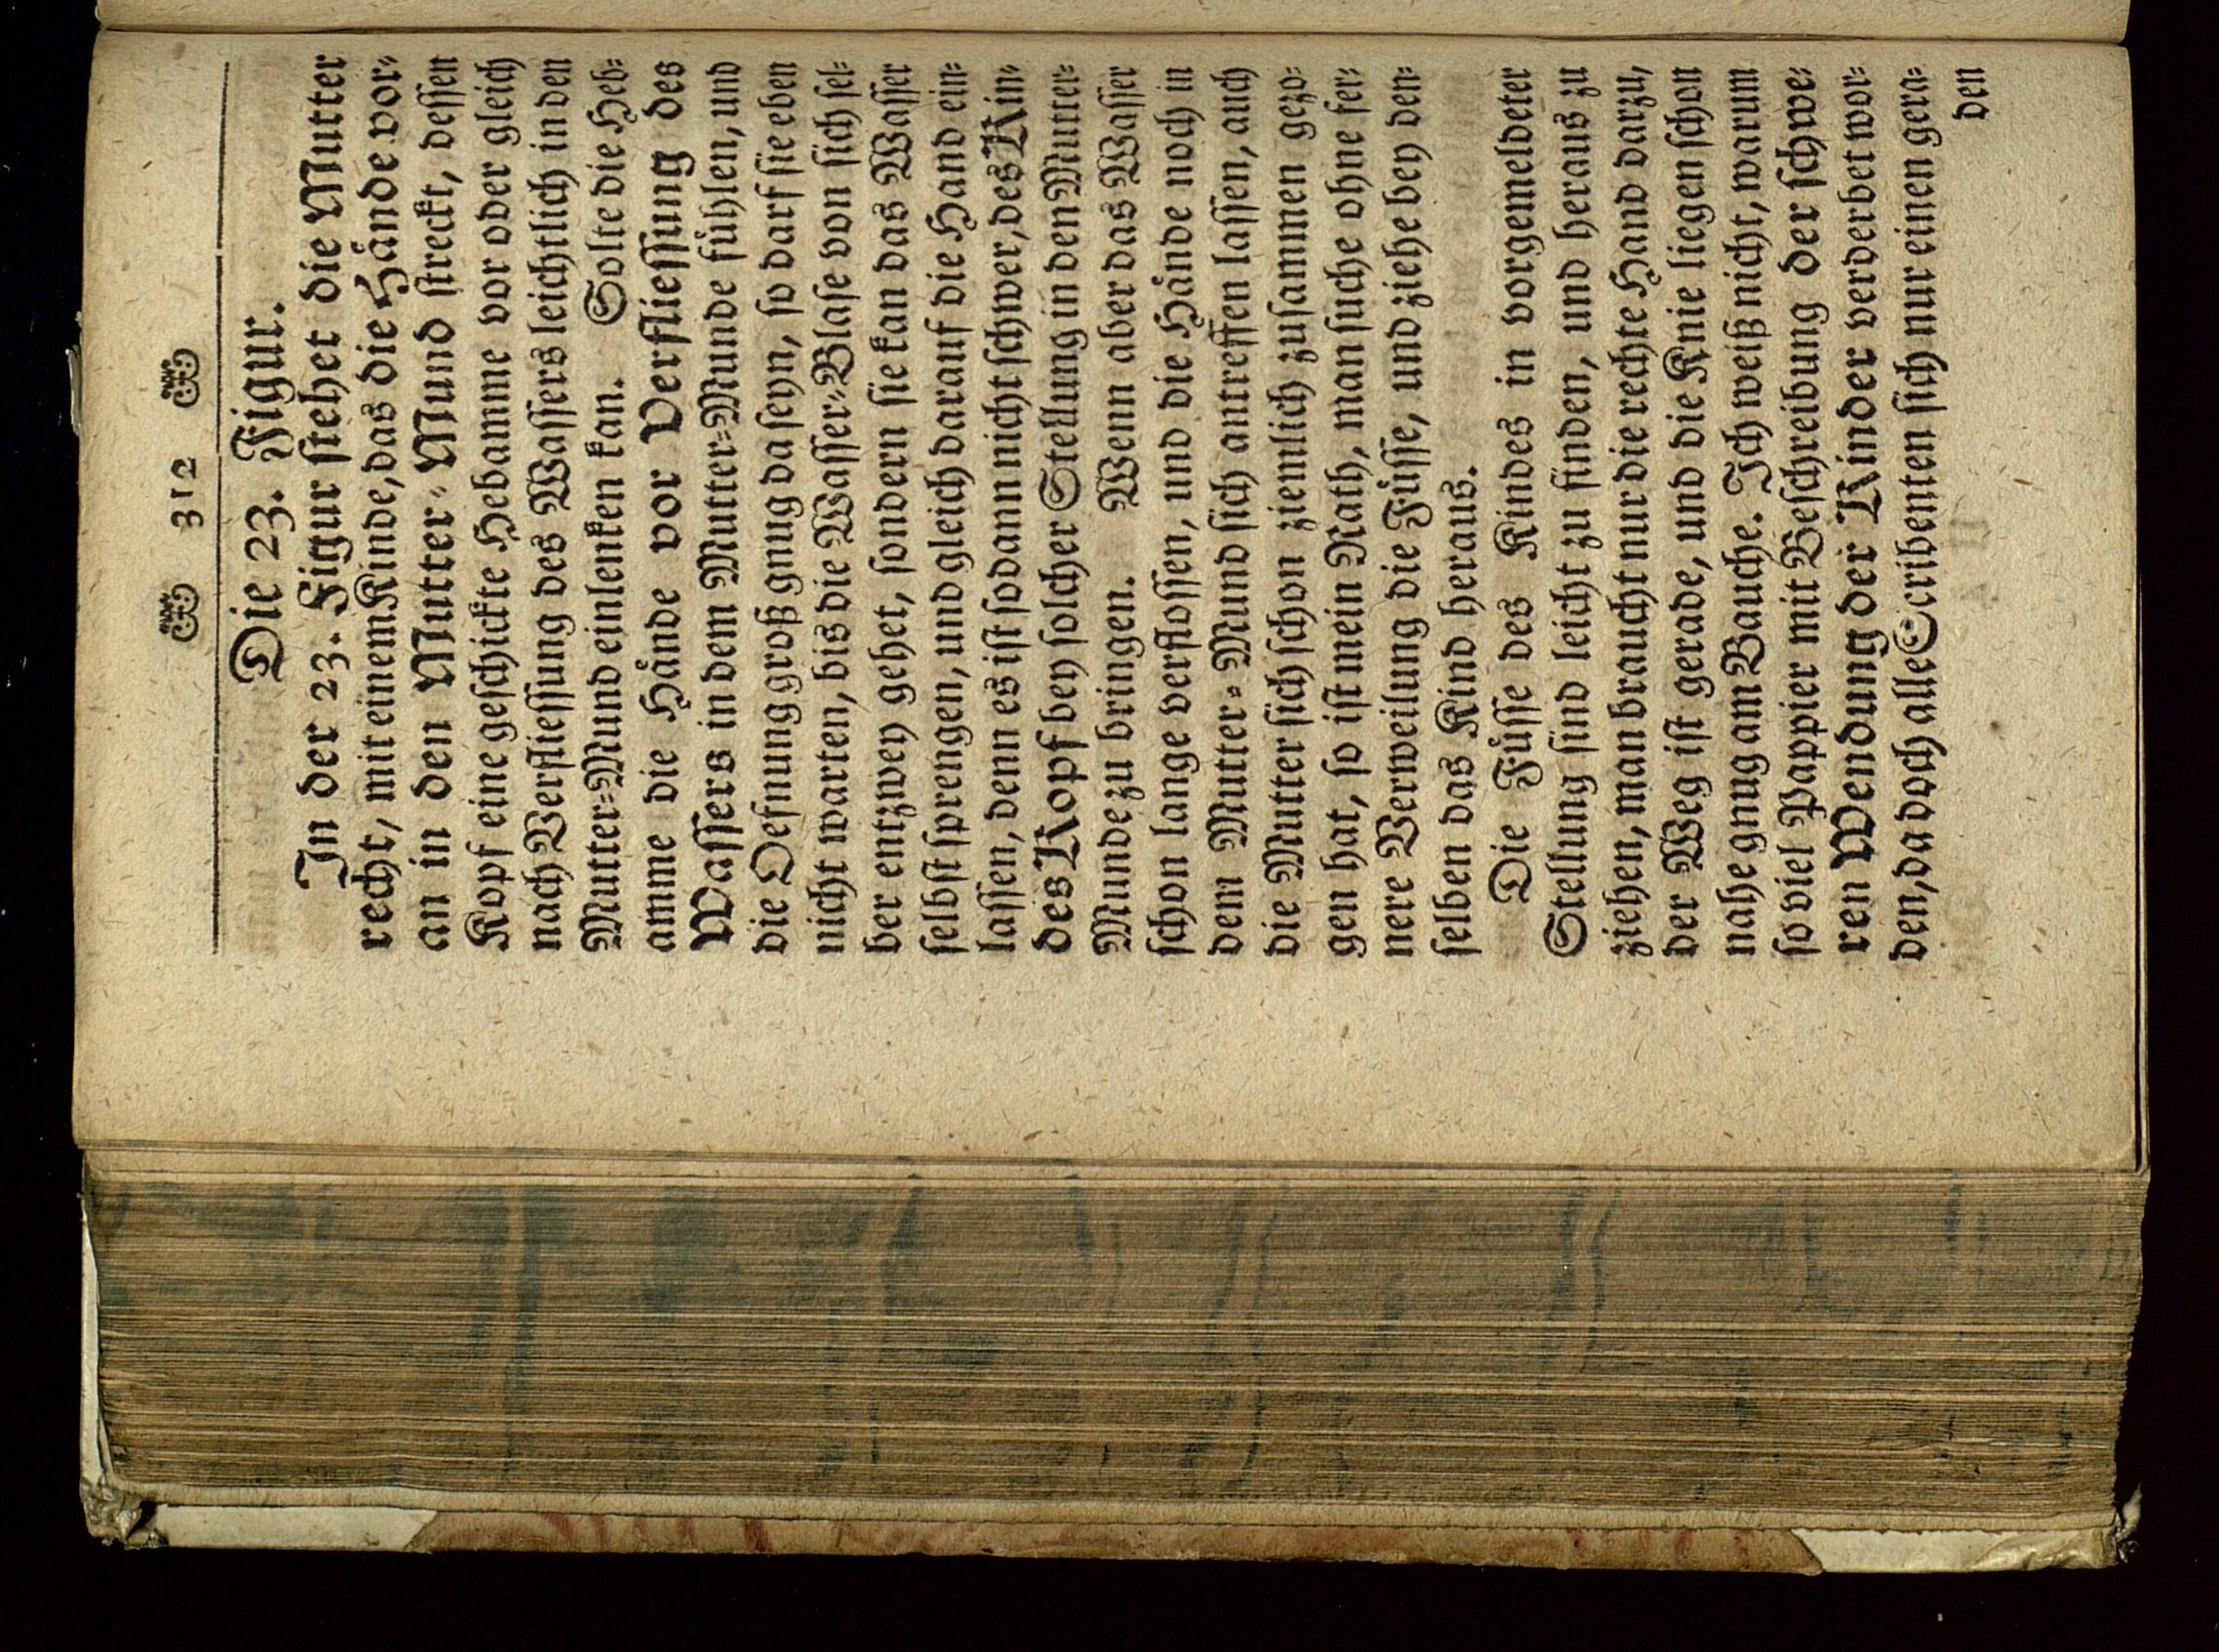 312
Die 23. Figur.
In der 23. Figur stehet die Mutter
recht, mit einem Kinde, das die Hånde vor-
an in den Mutter-Mund streckt, dessen
Kopf eine geschickte Hebamme vor oder gleich
nach Verfliessung des Wassers leichtlich in den
Mutter-Mund einlenken kan. Solte die Heb-
amme die Hånde vor Verfliessung des
Wassers in dem Mutter-Munde fühlen, und
die Oefnung groß gnug da seyn, so darf sie eben
nicht warten, bis die Wasser-Blase von sich sel-
ber entzwey gehet, sondern sie kan das Wasser
selbst sprengen, und gleich darauf die Hand ein-
lassen, denn es ist sodann nicht schwer, des Kin-
des Kopf bey solcher Stellung in den Mutter-
Munde zu bringen. Wenn aber das Wasser
schon lange verflossen, und die Hånde noch in
dem Mutter-Mund sich antreffen lassen, auch
die Mutter sich schon ziemlich zusammen gezo-
gen hat, so ist mein Rath, man suche ohne fer-
nere Verweilung die Füsse, und ziehe bey den-
selben das Kind heraus.
Die Füsse des Kindes in vorgemeldeter
Stellung sind leicht zu finden, und heraus zu
ziehen, man braucht nur die rechte Hand darzu,
der Weg ist gerade, und die Knie liegen schon
nahe gnug am Bauche. Ich weiß nicht, warum
so viel Pappier mit Beschreibung der schwe-
ren Wendung der Kinder verderbet wor-
den, da doch alle Scribenten sich nur einen gera-
den